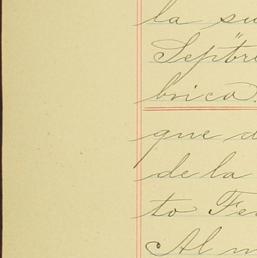 la su
Septre
brica.
que d
de la
to Fe
Al m